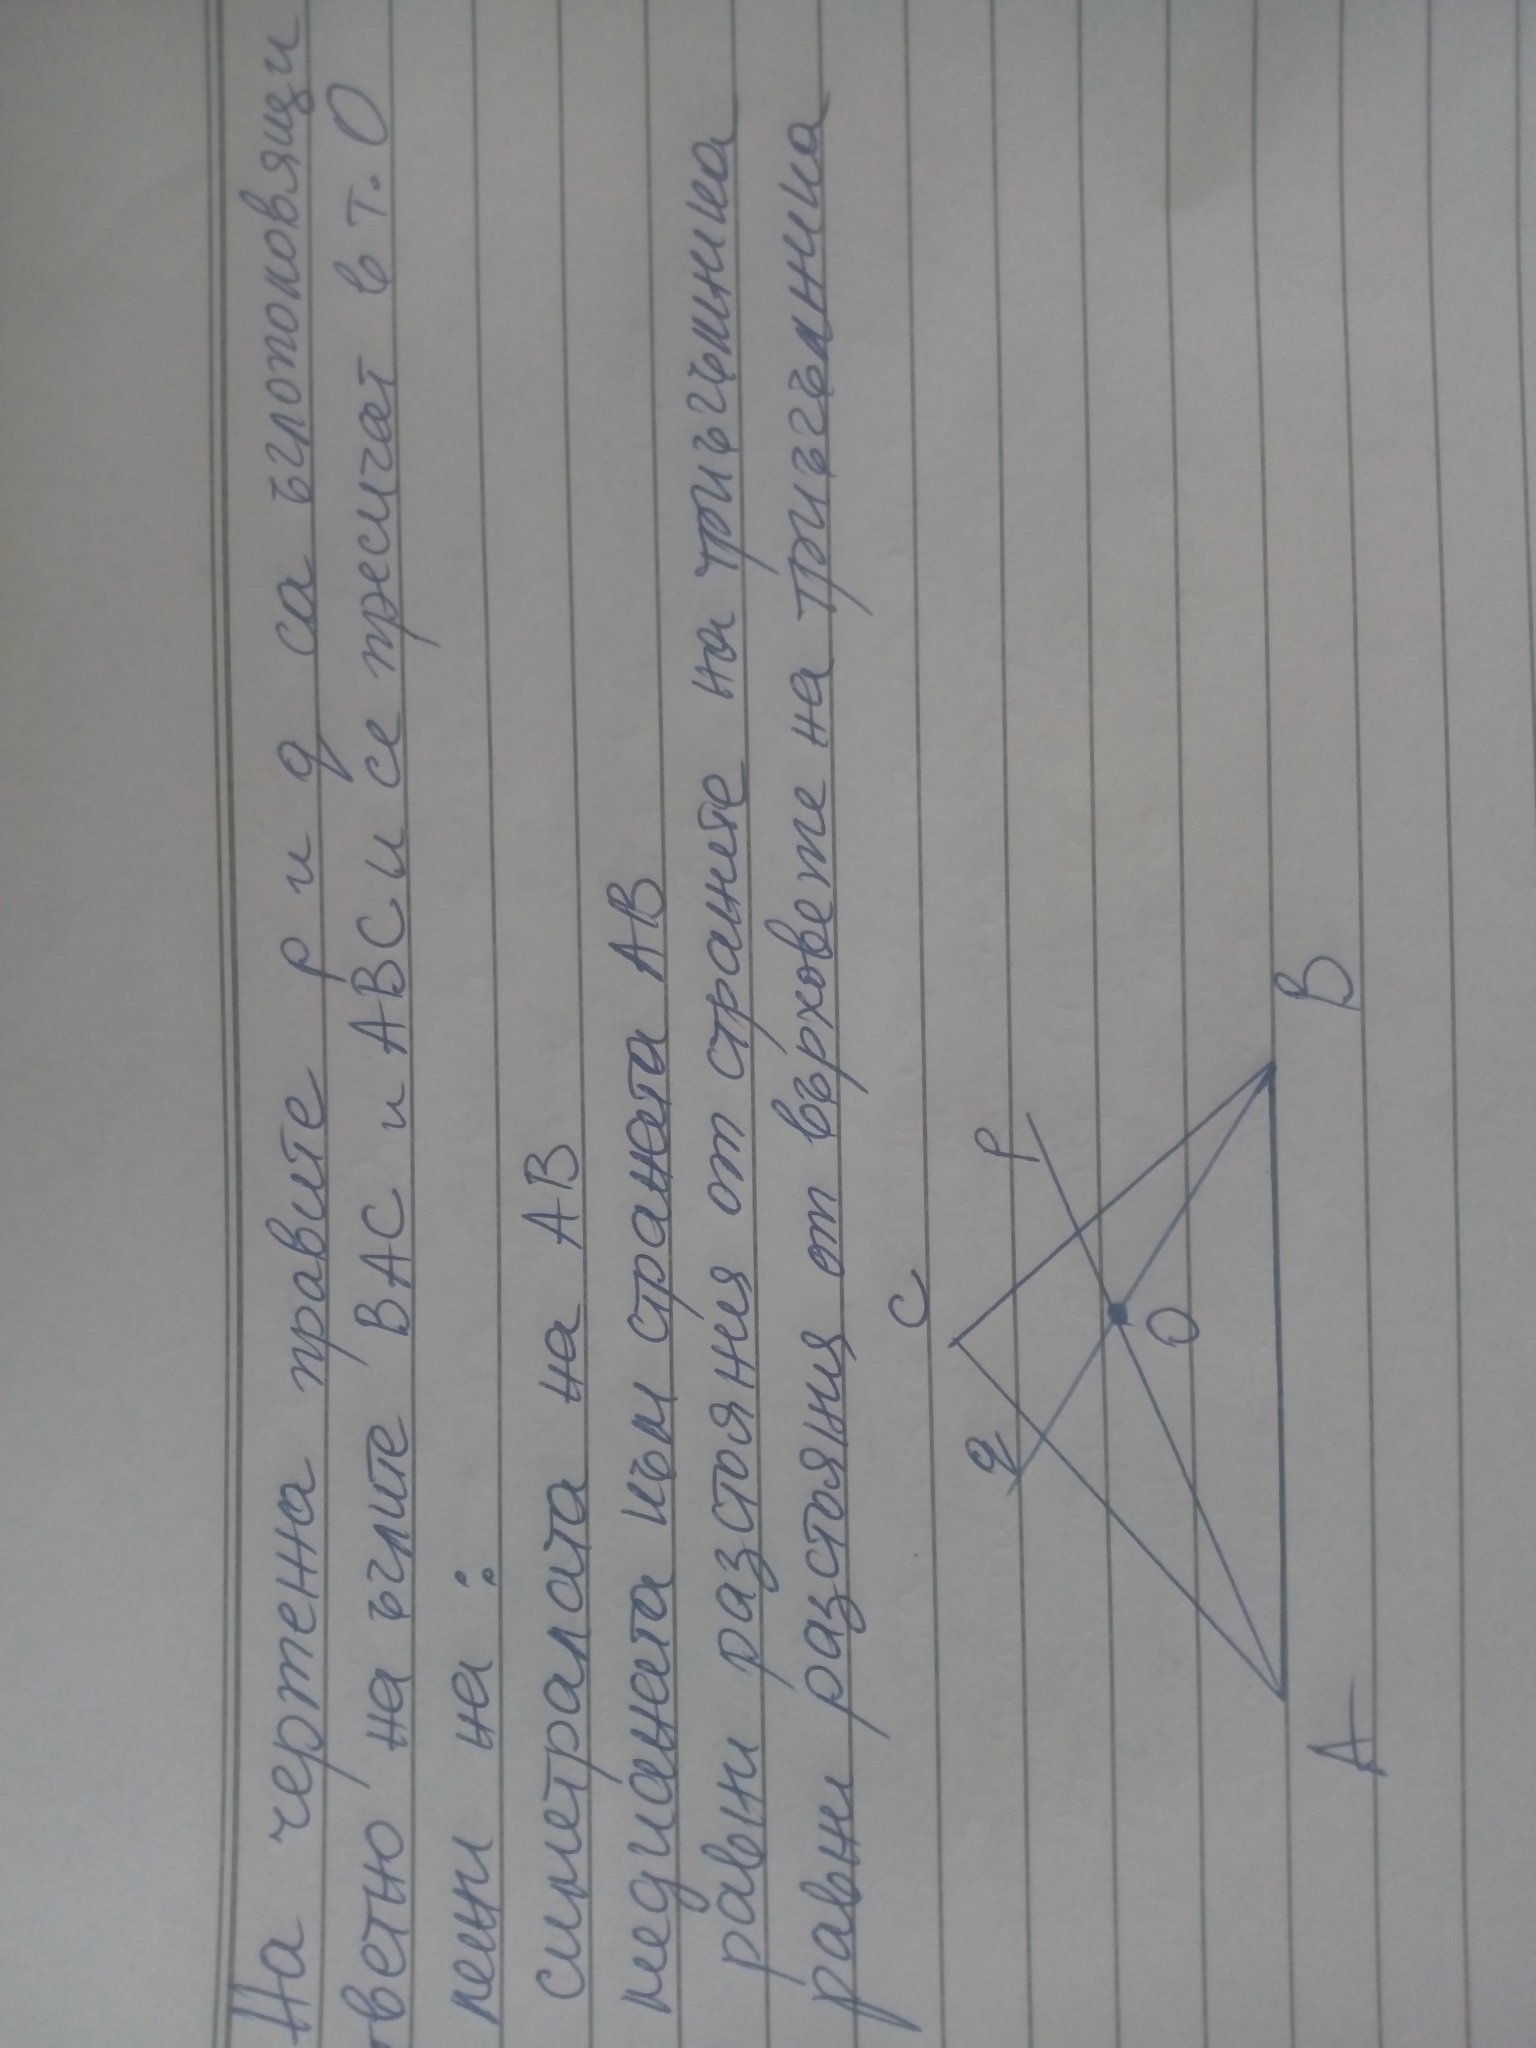 На чертежа правите p и q са ъглополовящи
ветно на ъглите BAC и ABC и се пресичат в т. O
лежи на :
симетралата на AB
медианата към страната AB
равни разстояния от страните на триъгълника
равни разстояния от върховете на триъгълника
C
q
P
O
A
B